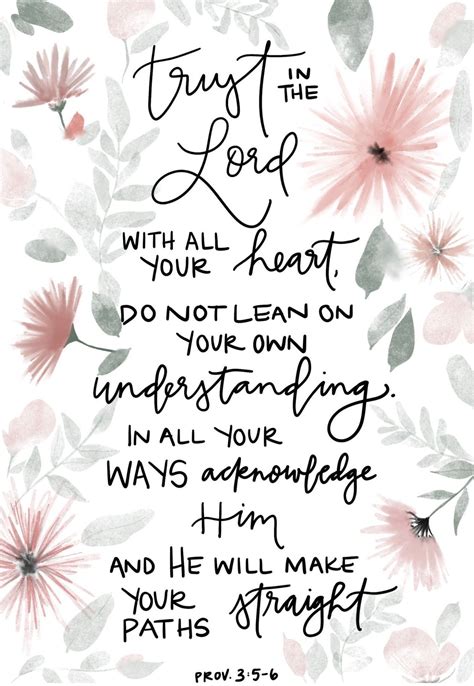 trust IN THE
Lord
WITH ALL
YOUR heart,
DO NOT LEAN ON
YOUR OWN
understanding.
IN ALL YOUR
WAYS acknowledge
Him
AND HE WILL MAKE
YOUR
PATHS straight
PROV. 3:5-6